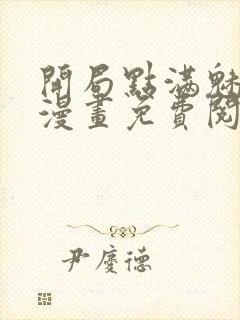 開局點滿魅
漫畫免費閱
尹慶德